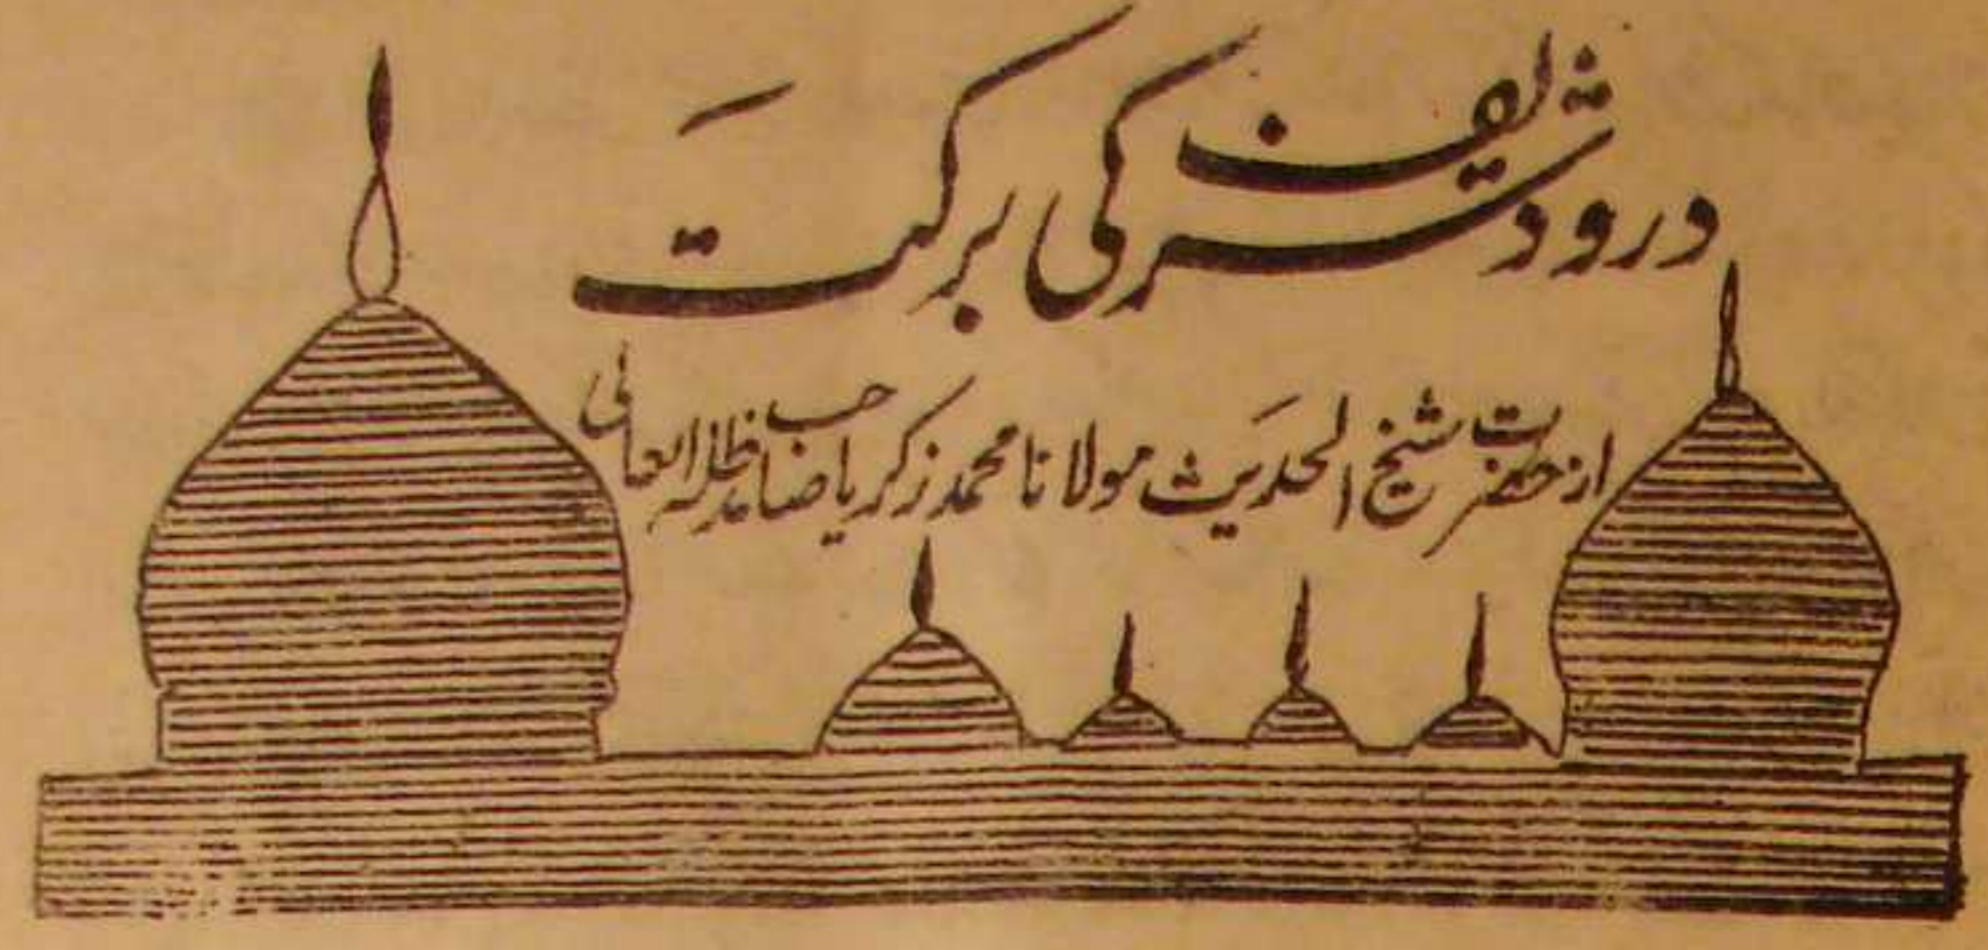 درود شریف کی برکت
از حضرت شیخ الحدیث مولانا محمد زکریا صاحب مدظلہ العالی